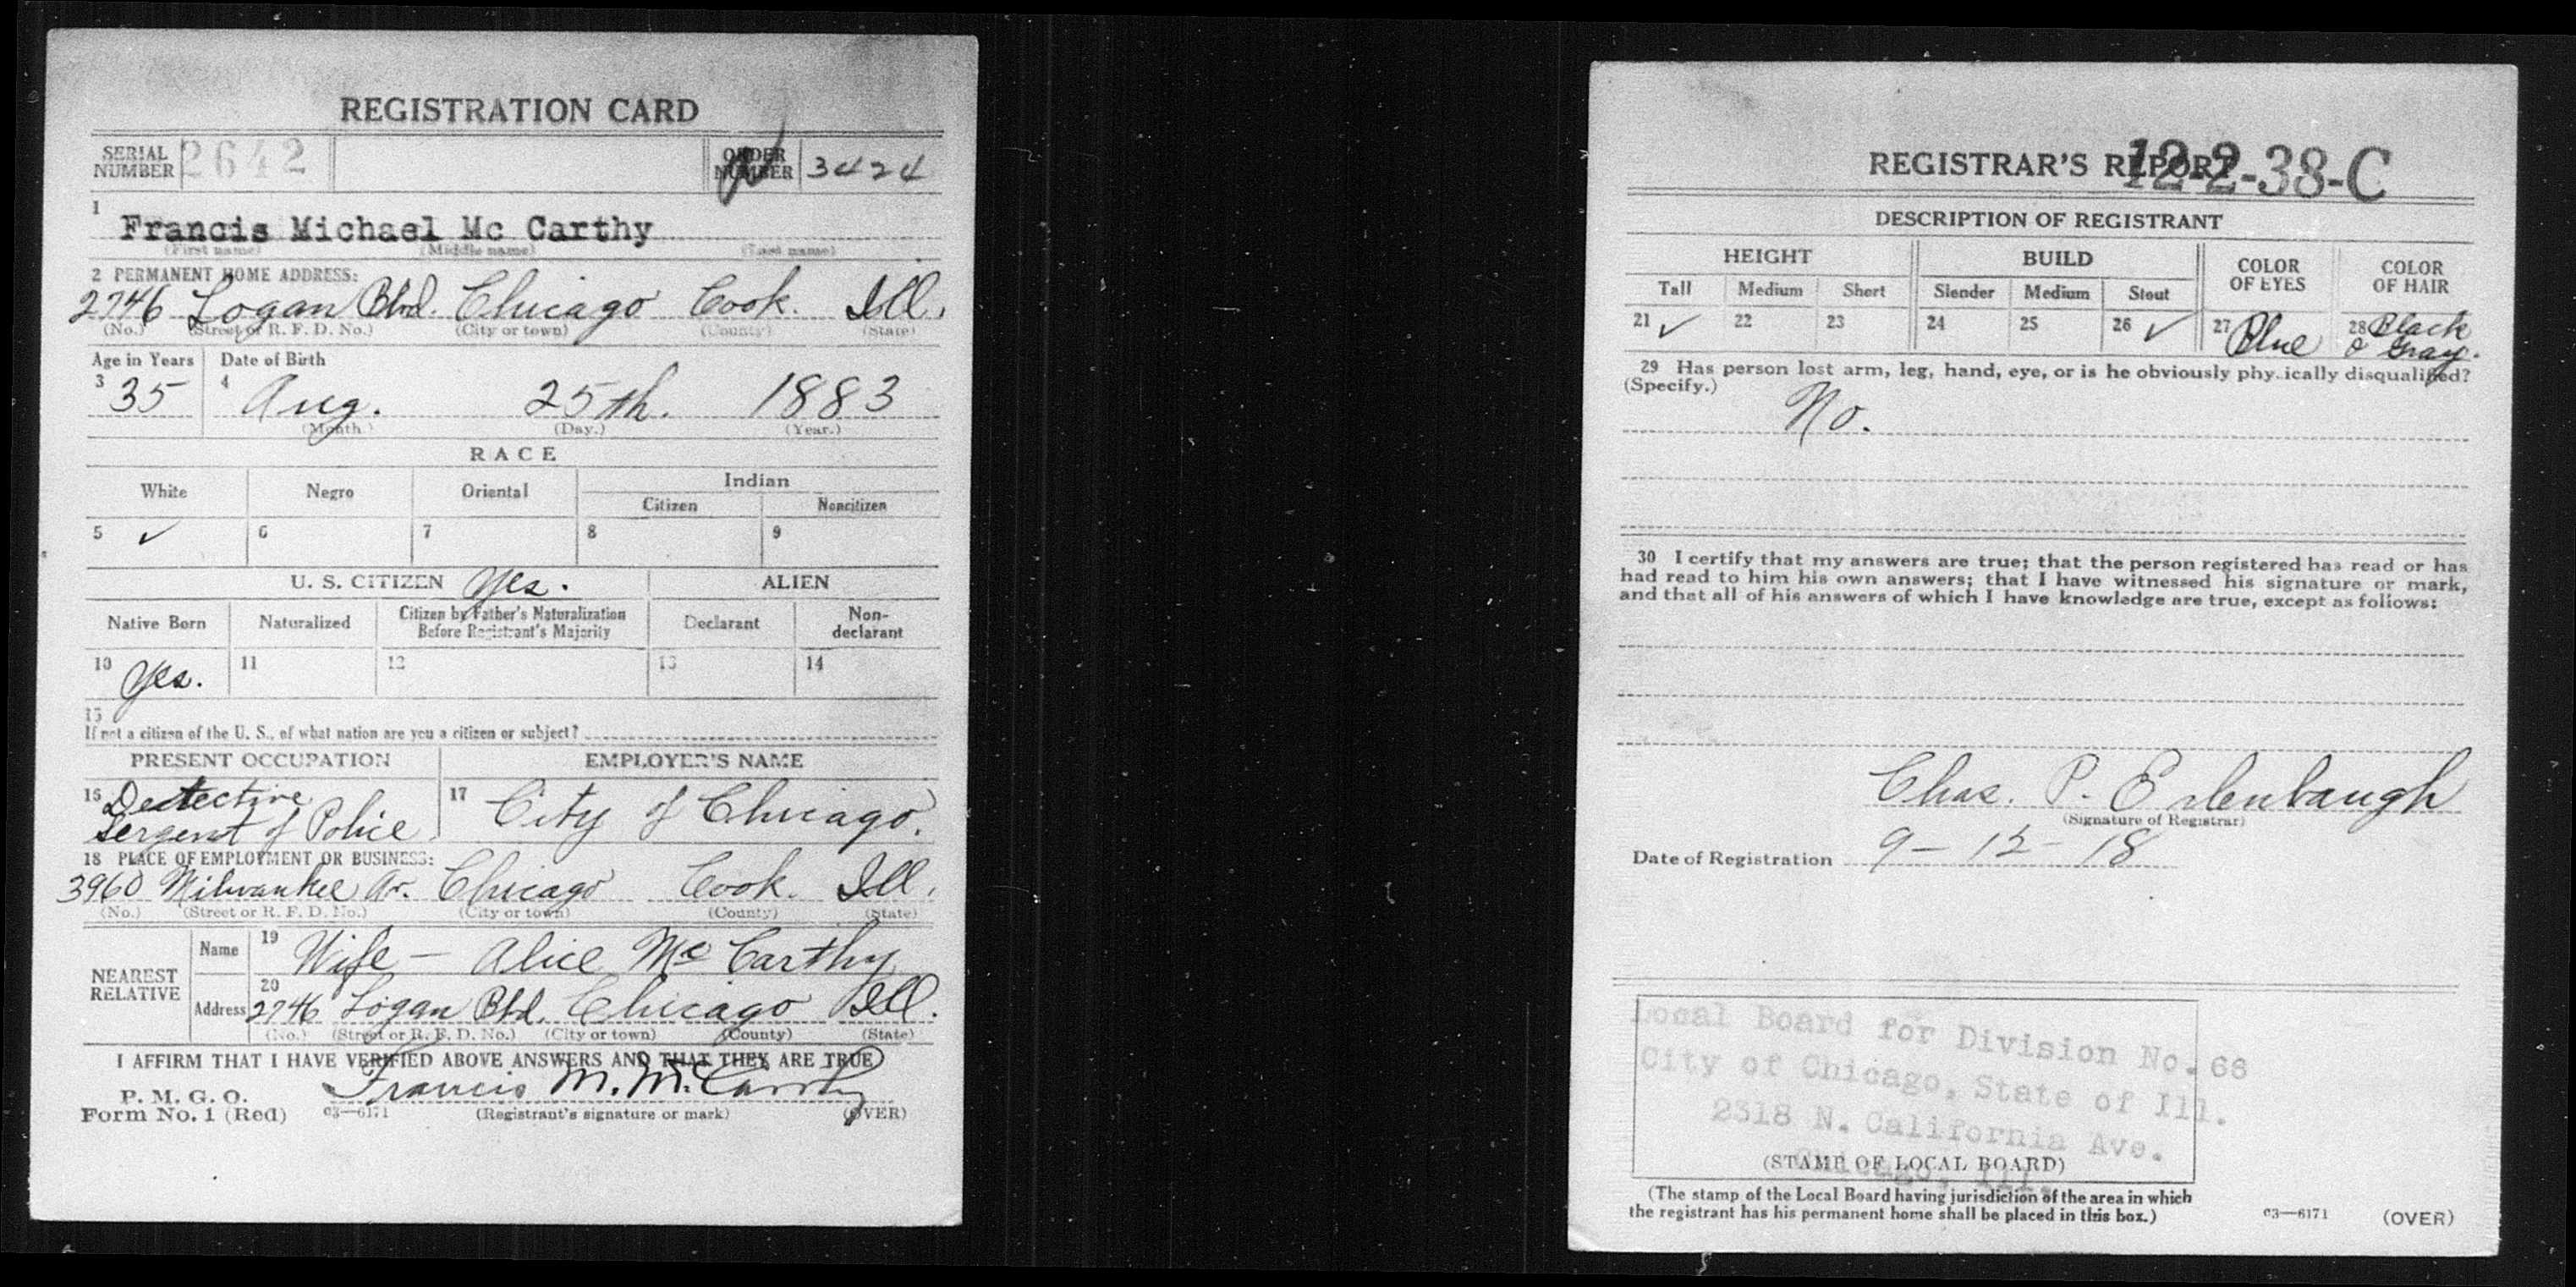 REGISTRATION CARD
SERIAL NUMBER 2642 ORDER NUMBER 3424
1 Francis Michael Mc Carthy
(First name) (Middle name) (Last name)
2 PERMANENT HOME ADDRESS:
2746 Logan Blvd. Chicago Cook. Ill.
(No.) (Street or R. F. D. No.) (City or town) (County) (State)
Age in Years Date of Birth
3 35 4 Aug. 25th. 1883
(Month.) (Day.) (Year.)
RACE
White Negro Oriental Indian
Citizen Noncitizen
5 ✓ 6 7 8 9
U. S. CITIZEN Yes. ALIEN
Native Born Naturalized Citizen by Father's Naturalization Before Registrant's Majority Declarant Non-declarant
10 Yes. 11 12 13 14
15
If not a citizen of the U. S., of what nation are you a citizen or subject?
PRESENT OCCUPATION EMPLOYER'S NAME
16 Dectective Sergent of Police 17 City of Chicago.
18 PLACE OF EMPLOYMENT OR BUSINESS:
3960 Milwaukee Av. Chicago Cook. Ill.
(No.) (Street or R. F. D. No.) (City or town) (County) (State)
NEAREST RELATIVE
Name 19 Wife - Alice Mc Carthy
Address 20 2746 Logan Bld. Chicago Ill.
(No.) (Street or R. F. D. No.) (City or town) (County) (State)
I AFFIRM THAT I HAVE VERIFIED ABOVE ANSWERS AND THAT THEY ARE TRUE
P. M. G. O. Francis M. McCarthy
Form No. 1 (Red) 03—6171 (Registrant's signature or mark) (OVER)
REGISTRAR'S REPORT 12-2-38-C
DESCRIPTION OF REGISTRANT
HEIGHT BUILD COLOR OF EYES COLOR OF HAIR
Tall Medium Short Slender Medium Stout
21 ✓ 22 23 24 25 26 ✓ 27 Blue 28 Black & Gray.
29 Has person lost arm, leg, hand, eye, or is he obviously physically disqualified?
(Specify.)
No.
30 I certify that my answers are true; that the person registered has read or has
had read to him his own answers; that I have witnessed his signature or mark,
and that all of his answers of which I have knowledge are true, except as follows:
Chas. P. Erlenbaugh
(Signature of Registrar)
Date of Registration 9-12-18
Local Board for Division No. 66
City of Chicago, State of Ill.
2318 N. California Ave.
Chicago, Ill.
(STAMP OF LOCAL BOARD)
(The stamp of the Local Board having jurisdiction of the area in which
the registrant has his permanent home shall be placed in this box.)
03—6171 (OVER)